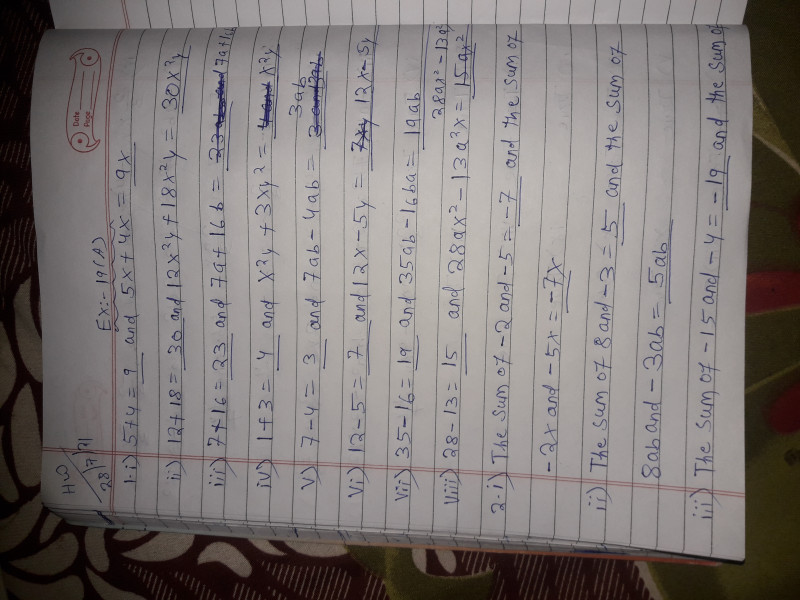 Date
Page
HW
28/7/21
Ex:- 19(A)
1.i) 5+4 = 9 and 5x+4x = 9x
ii) 12+18 = 30 and 12x²y+18x²y = 30x²y
iii) 7+16 = 23 and 7a+16b = 7a+16b
iv) 1+3 = 4 and x²y+3xy² = x²y
v) 7-4 = 3 and 7ab-4ab = 3ab
vi) 12-5 = 7 and 12x-5y = 12x-5y
vii) 35-16 = 19 and 35ab-16ba = 19ab
28ax²-13a²
viii) 28-13 = 15 and 28ax²-13a²x = 15ax²
2.i) The sum of -2 and -5 = -7 and the sum of
-2x and -5x = -7x
ii) The sum of 8 and -3 = 5 and the sum of
8ab and -3ab = 5ab
iii) The sum of -15 and -4 = -19 and the sum of